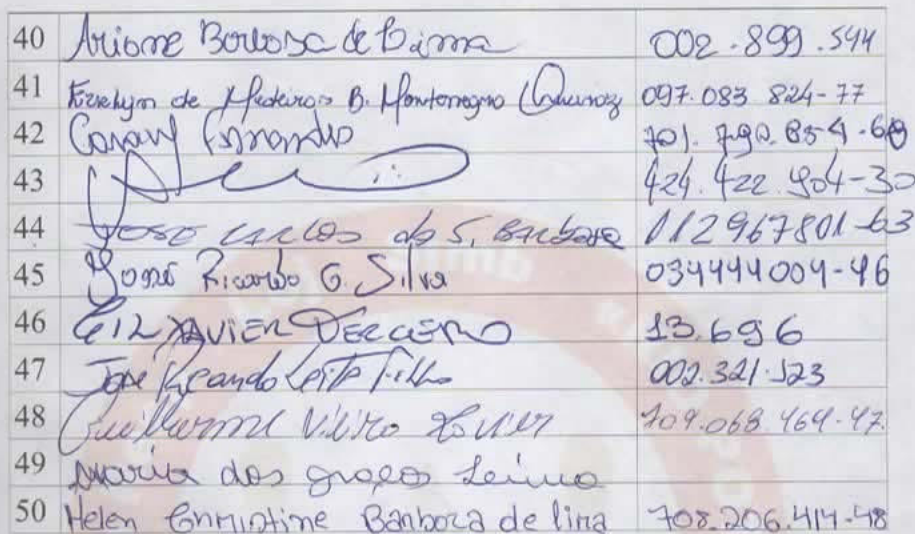 40 Ariane Barbosa de Lima 002.899.544
41 Evelyn de Medeiros B. Montenegro Queiroz 097.083 824-77
42 701.790.854-60
43 424.422.904-30
44 Jose Carlos dos S. Barbosa 112967801-63
45 José Ricardo G. Silva 034444004-46
46 GIL XAVIER TERCEIRO 13.696
47 José Ricardo Leite Filho 002.321.523
48 Guilherme Xavier 709.068.464-47
49 Maria das graças
50 Helen Christine Barboza de lima 708.206.414-48